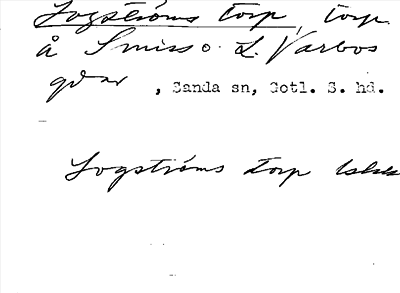 Sogströms torp, torp
å Smiss o. L. Varbos
gdar, Sanda sn, Gotl. S. hd.
Sogströms torp